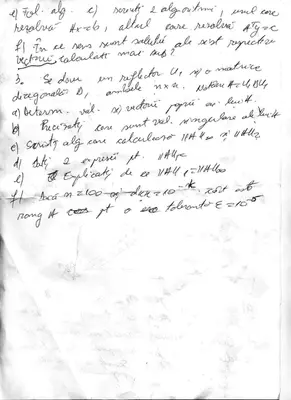 e) Fol. alg. c) scrieți 2 algoritmi, unul care
rezolvă Ax=b, altul care rezolvă Aᵀy=c
f) În ce sens sunt soluții ale sist. respective
vectorii calculați mai sus?
3. Se dau un reflector U, și o matrice
diagonală D, ambele n×n. Notăm A=U₁DU₁
a) Determ. val. și vectorii proprii
b) Precizați care sunt val. singulare ale
c) Scrieți alg care calculează ||A|| și ||A||₂
d) Dați 2 expresii pt. ||A||
e) Explicați de ce ||A||₁=||A||∞
f) Dacă n=100 și =10⁻ᵏ, cât este
rang A pt o toleranță ε=10⁻⁵